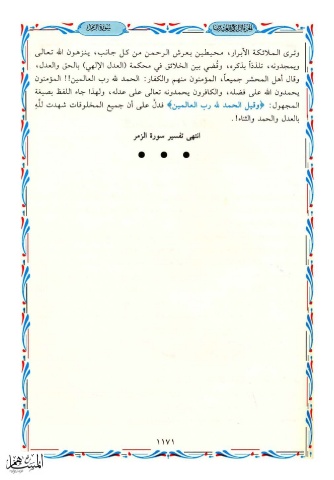 سورة الزمر
وترى الملائكة الأبرار، محيطين بعرش الرحمن من كل جانب، ينزهون الله تعالى
ويمجدونه، تلذذاً بذكره، وقُضي بين الخلائق في محكمة (العدل الإلهي) بالحق والعدل،
وقال أهل المحشر جميعاً، المؤمنون منهم والكفار: الحمد لله رب العالمين!! المؤمنون
يحمدون الله على فضله، والكافرون يحمدونه تعالى على عدله، ولهذا جاء اللفظ بصيغة
المجهول: ﴿وقيل الحمد لله رب العالمين﴾ فدلَّ على أن جميع المخلوقات شهدت للَّهِ
بالعدل والحمد والثناء!.
انتهى تفسير سورة الزمر
● ● ●
١١٧١